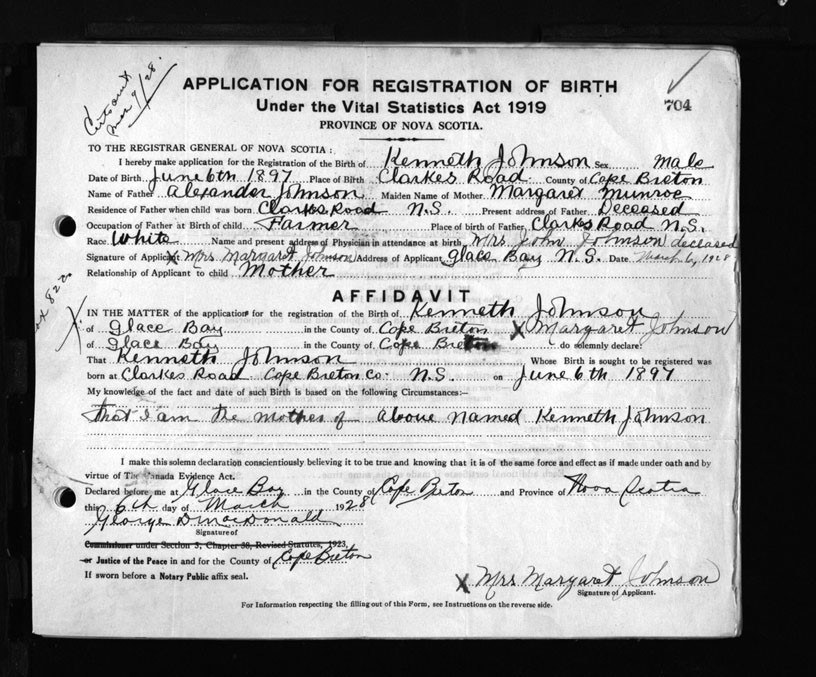 Certs sent
Mar 9/28.
APPLICATION FOR REGISTRATION OF BIRTH
704
Under the Vital Statistics Act 1919
PROVINCE OF NOVA SCOTIA.
TO THE REGISTRAR GENERAL OF NOVA SCOTIA :
I hereby make application for the Registration of the Birth of Kenneth Johnson Sex Male
Date of Birth June 6th 1897 Place of Birth Clarkes Road County of Cape Breton
Name of Father Alexander Johnson Maiden Name of Mother Margaret Munroe
Residence of Father when child was born Clarks Road N.S. Present address of Father Deceased
Occupation of Father at Birth of child Farmer Place of birth of Father Clarks Road N.S.
Race White Name and present address of Physician in attendance at birth Mrs John Johnson deceased
Signature of Applicant X Mrs Margaret Johnson Address of Applicant Glace Bay N.S. Date March 6, 1928
Relationship of Applicant to child Mother
AFFIDAVIT
IN THE MATTER of the application for the registration of the Birth of Kenneth Johnson
of Glace Bay in the County of Cape Breton X Margaret Johnson
of Glace Bay in the County of Cape Breton do solemnly declare:
That Kenneth Johnson Whose Birth is sought to be registered was
born at Clarkes Road Cape Breton Co. N.S. on June 6th 1897
My knowledge of the fact and date of such Birth is based on the following Circumstances:—
that I am the mother of above named Kenneth Johnson
I make this solemn declaration conscientiously believing it to be true and knowing that it is of the same force and effect as if made under oath and by
virtue of The Canada Evidence Act.
Declared before me at Glace Bay in the County of Cape Breton and Province of Nova Scotia
this 6th day of March 1928
George D MacDonald
Signature of
Commissioner under Section 3, Chapter 38, Revised Statutes, 1923,
or Justice of the Peace in and for the County of Cape Breton
If sworn before a Notary Public affix seal.
X Mrs Margaret Johnson
Signature of Applicant.
For Information respecting the filling out of this Form, see Instructions on the reverse side.